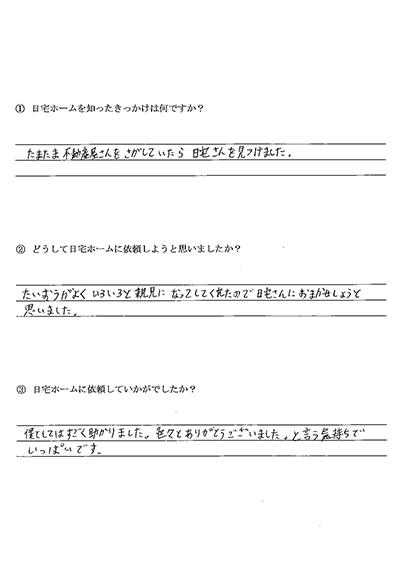 ① 日宅ホームを知ったきっかけは何ですか?
たまたま不動産屋さんをさがしていたら日宅さんを見つけました。
② どうして日宅ホームに依頼しようと思いましたか?
たいおうがよくいろいろと親見になってしてくれたので日宅さんにおまかせしようと
思いました。
③ 日宅ホームに依頼していかがでしたか?
僕としてはすごく助かりました。色々とありがとうございました。と言う気持ちで
いっぱいです。